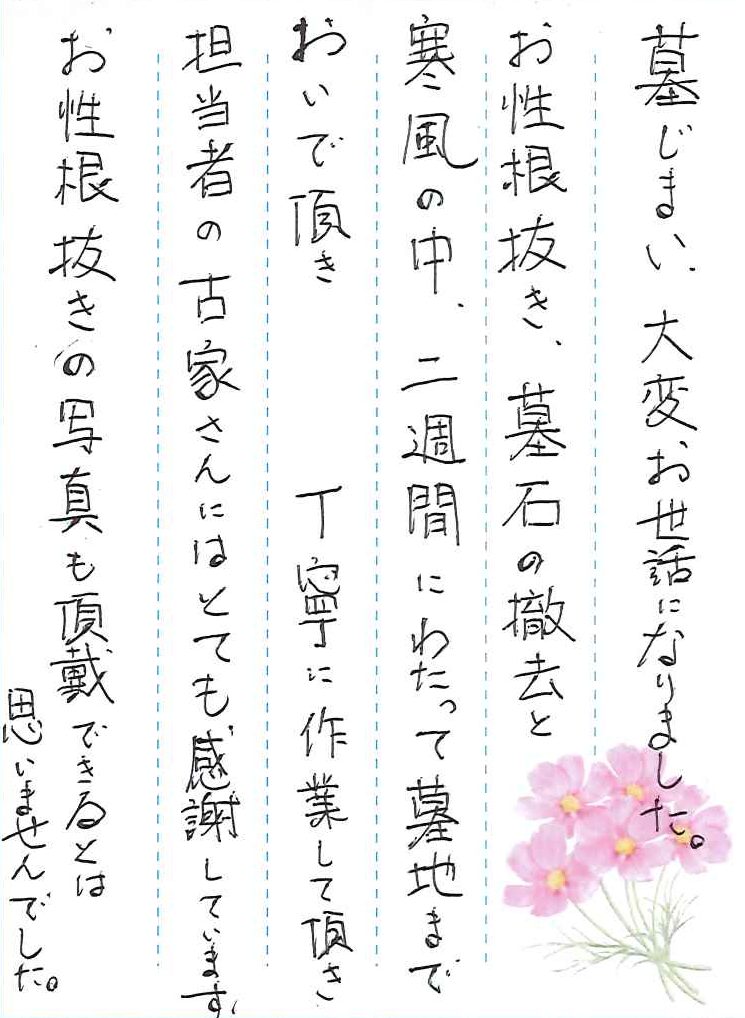 墓じまい、大変お世話になりました。
お性根抜き、墓石の撤去と
寒風の中、二週間にわたって墓地まで
おいで頂き　丁寧に作業して頂き
担当者の古家さんにはとても感謝しています。
お性根抜きの写真も頂戴できるとは
思いませんでした。